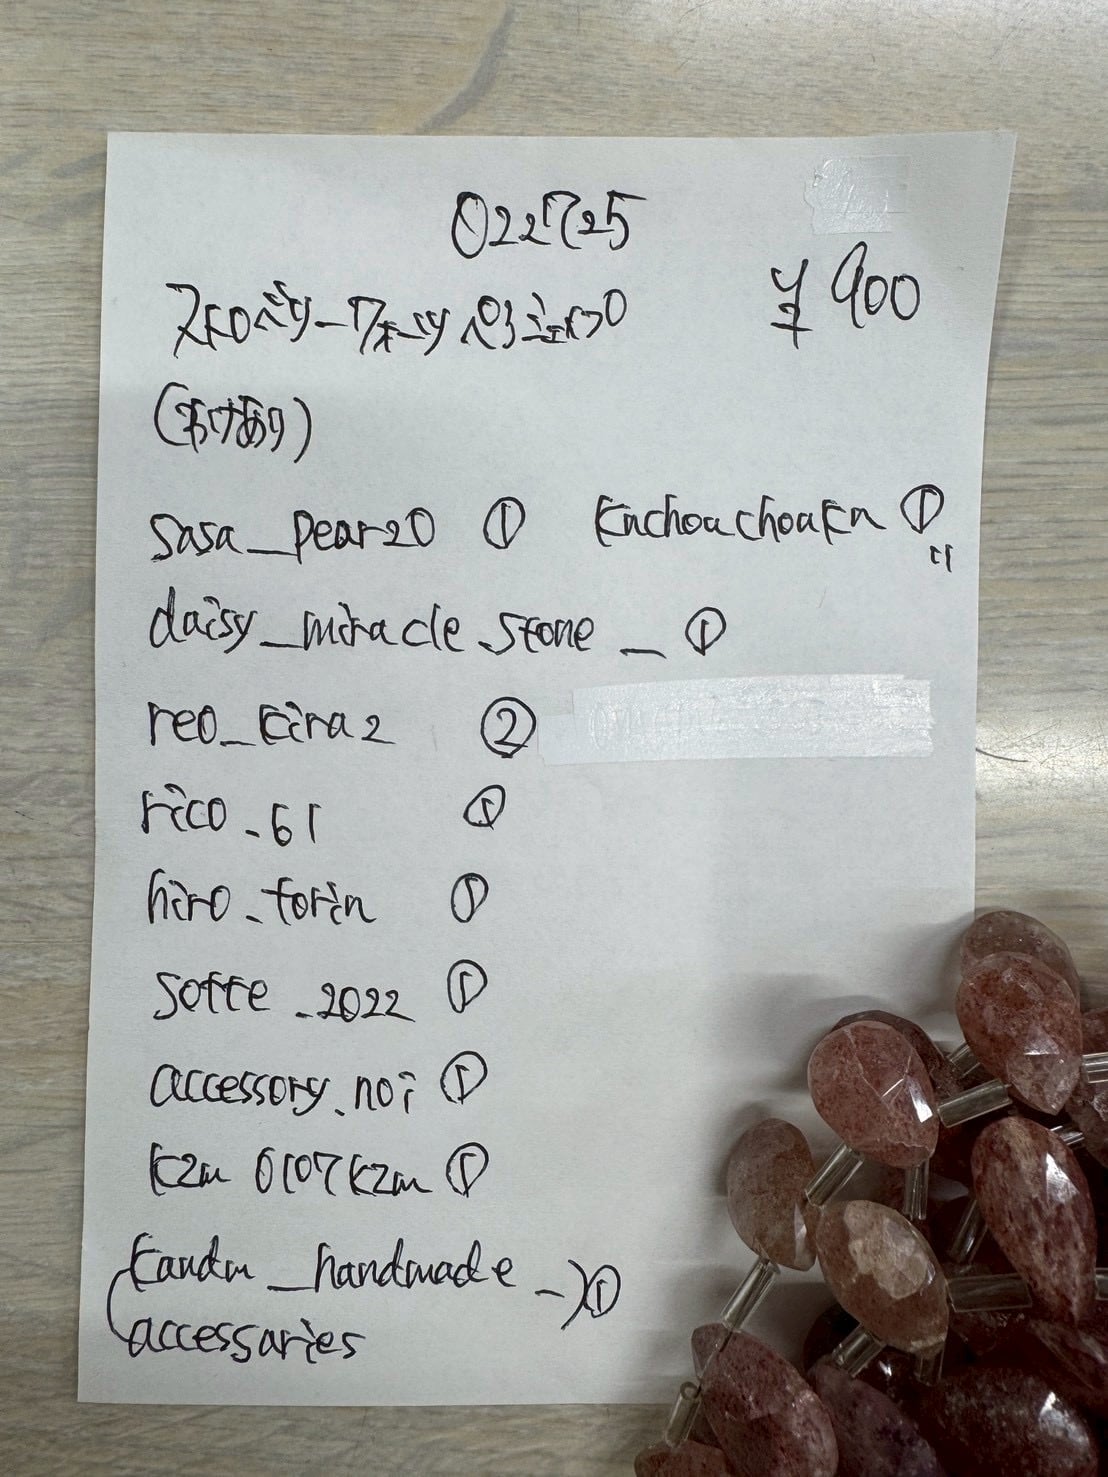 022725
¥900
ストロベリークォーツ ペアシェイプ
(わけあり)
sasa_pear20 ① kachoachoaka ①
11
daisy_miracle.stone_ ①
reo_kira2 ②
rico_61 ①
hiro_forin ①
sotte_2022 ①
accessory.noi ①
kzm 0107kzm ①
(kandm_handmade_) ①
accessaries